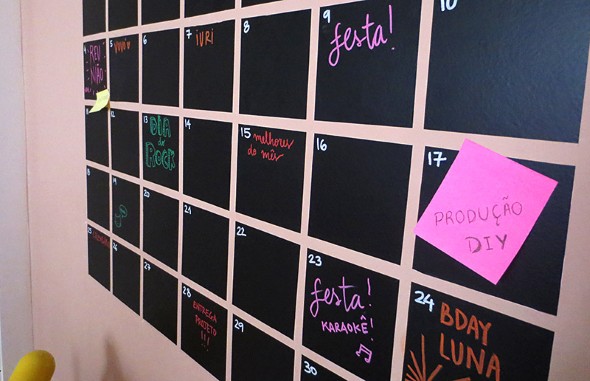 8
9
10
festa!
4
REU
NIÃO
5
6
7
IURI
11
12
13
DIA
do
ROCK
14
15
melhores
do mês
16
17
PRODUÇÃO
DIY
18
19
20
21
22
23
festa!
KARAOKÊ!
24
BDAY
LUNA
25
26
27
28
ENTREGA
PROJETO
!!!
29
30